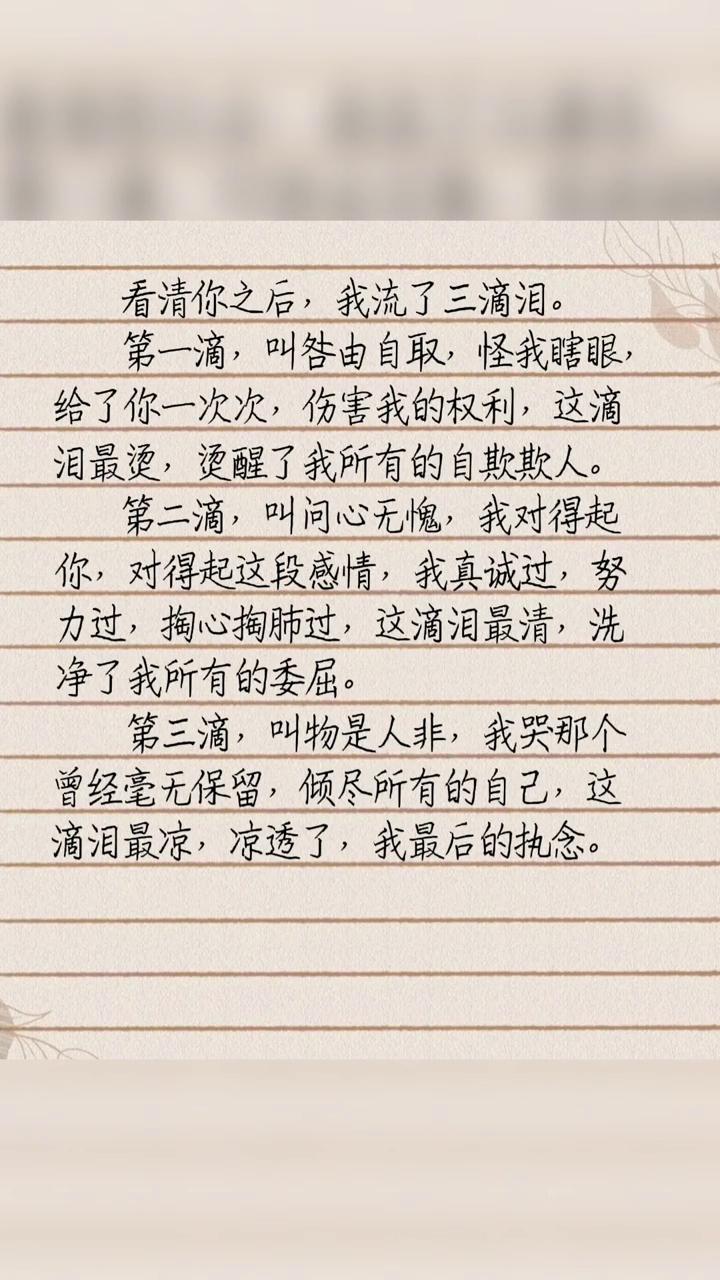 看清你之后，我流了三滴泪。
第一滴，叫咎由自取，怪我瞎眼，
给了你一次次，伤害我的权利，这滴
泪最烫，烫醒了我所有的自欺欺人。
第二滴，叫问心无愧，我对得起
你，对得起这段感情，我真诚过，努
力过，掏心掏肺过，这滴泪最清，洗
净了我所有的委屈。
第三滴，叫物是人非，我哭那个
曾经毫无保留，倾尽所有的自己，这
滴泪最凉，凉透了，我最后的执念。